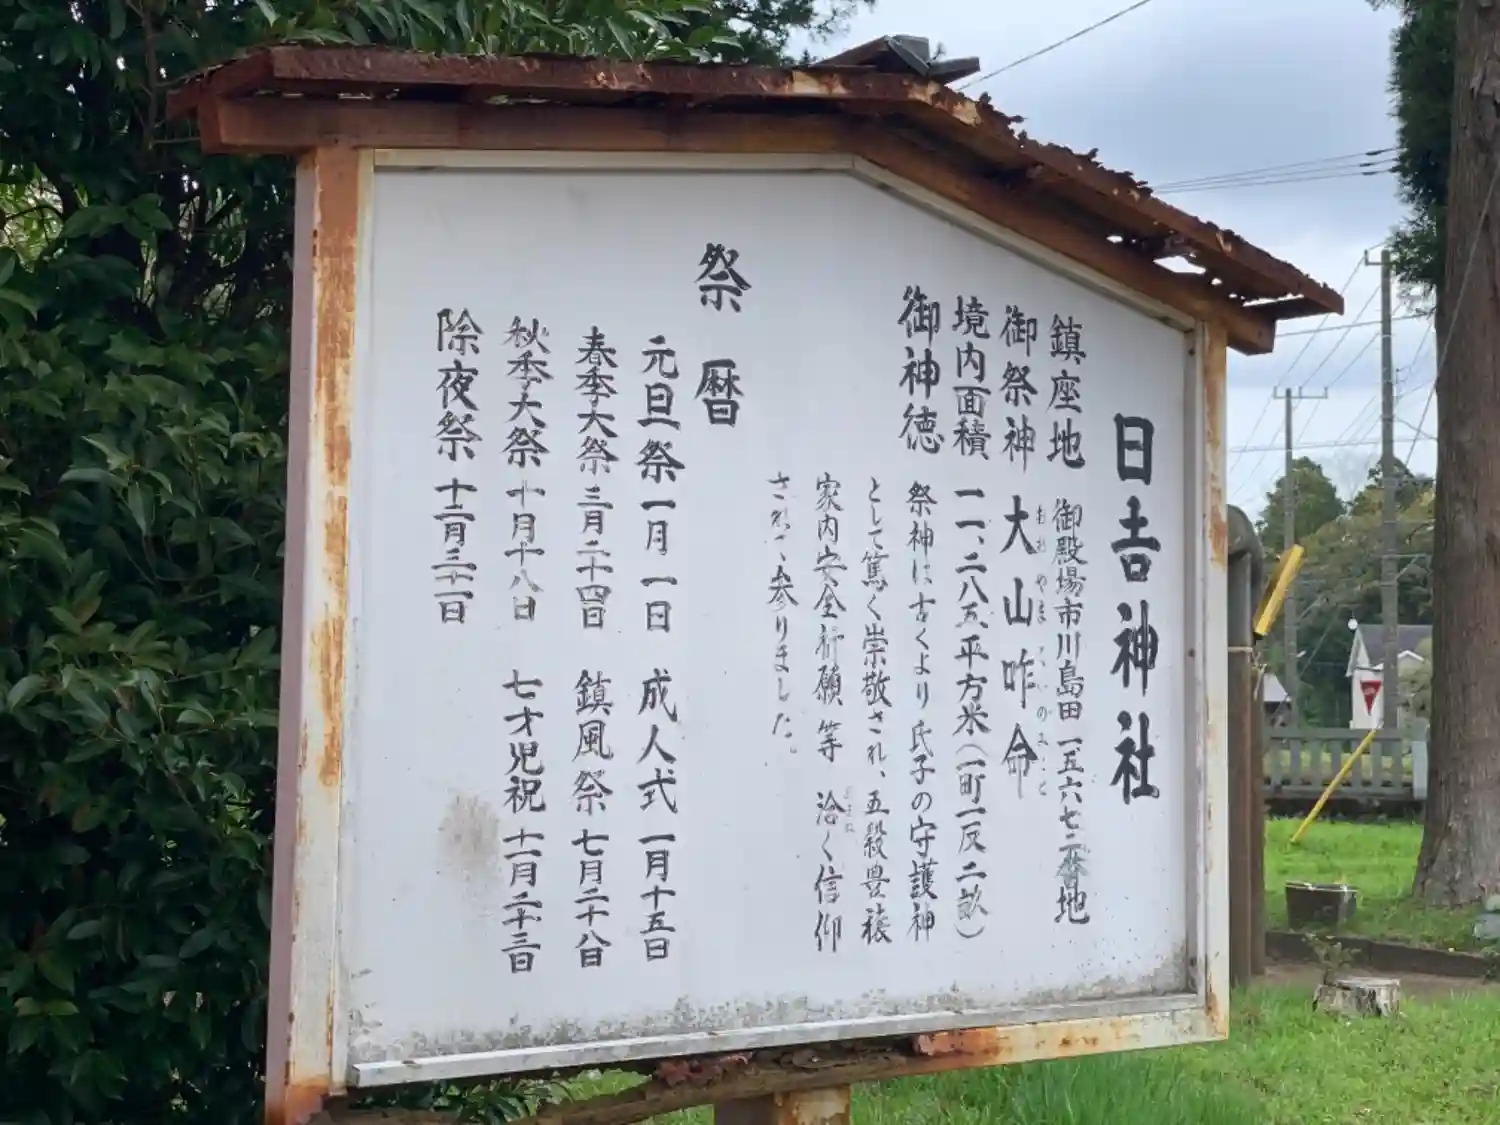 日吉神社
鎮座地 御殿場市川島田一五六七二番地
御祭神 大山咋命
おおやまくいのみこと
境内面積 一一、二八五、平方米(一町一反二畝)
御神徳 祭神は古くより氏子の守護神
として篤く崇敬され、五穀豊穣
家内安全祈願等 洽く信仰
あまね
されて参りました。
祭暦
元旦祭 一月一日 成人式 一月十五日
春季大祭 三月二十四日 鎮風祭 七月二十八日
秋季大祭 十月十八日 七才児祝 十一月二十三日
除夜祭 十二月三十一日